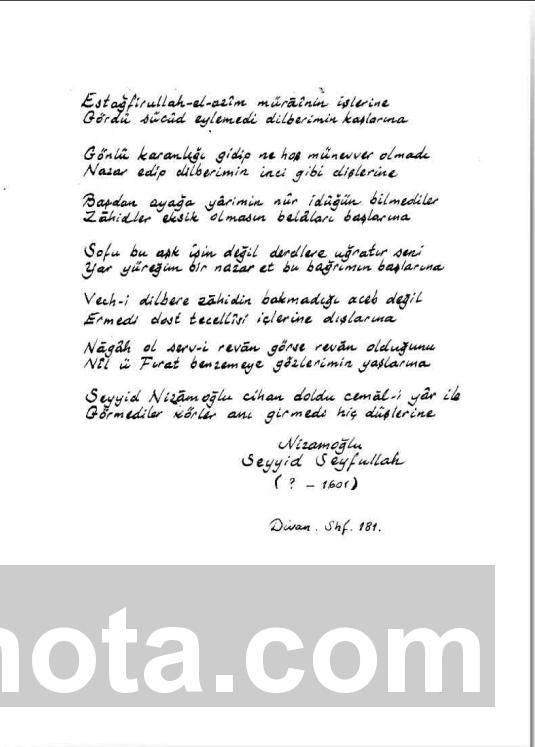 Estağfirullah-el-azîm mürâînin işlerine
Gördü sücûd eylemedi dilberimin kaşlarına
Gönlü karanlığı gidip ne hoş münevver olmadı
Nazar edip dilberimin inci gibi dişlerine
Başdan ayağa yârimin nûr idüğün bilmediler
Zâhidler eksik olmasın belâları başlarına
Sofu bu aşk işin değil derdlere uğratur seni
Yar yüreğün bir nazar et bu bağrımın başlarına
Vech-i dilbere zâhidin bakmadığı aceb değil
Ermedi dost tecellîsi içlerine dışlarına
Nâgâh ol serv-i revân görse revân olduğunu
Nîl ü Fırat benzemeye gözlerimin yaşlarına
Seyyid Nizâmoğlu cihan doldu cemâl-i yâr ile
Görmediler körler anı girmedi hiç düşlerine
Nizamoğlu
Seyyid Seyfullah
( ? - 1601)
Divan. Shf. 181.
nota.com